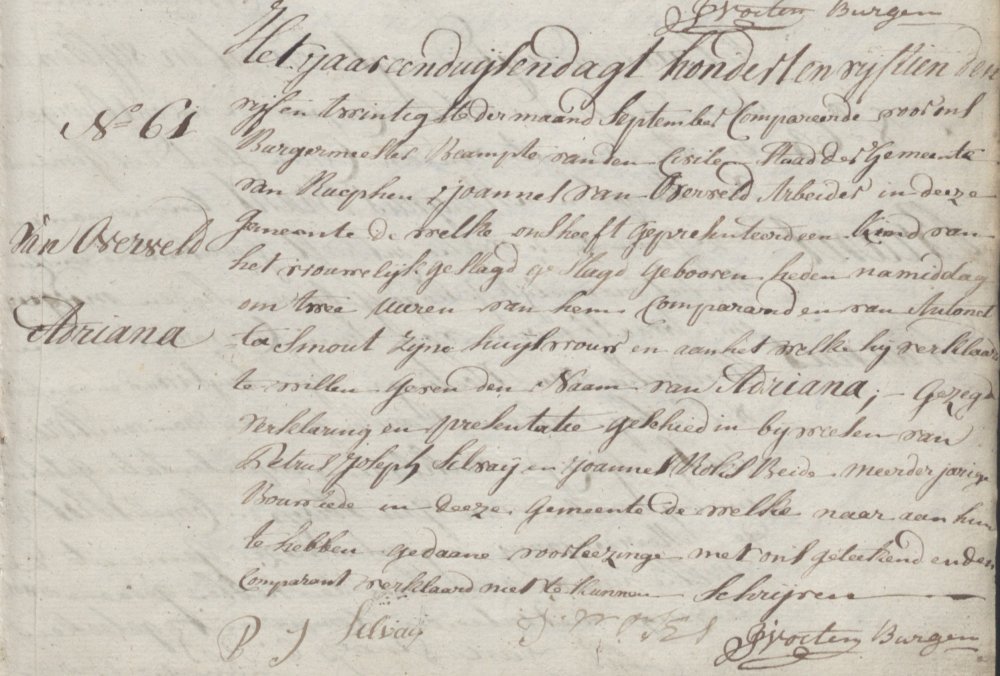 JVoeten Burgem
Het jaar eenduijsendagt hondert en vijftien den
N° 61
vijf en twintigste der maand September Compareerde voor ons
Burgermeester Beampte van den Civilen Staad der Gemeente
van Rucphen, joannes van Overveld Arbeider in deeze
van Overveld
Gemeente de welke ons heeft gepresenteerd een kind van
het vrouwelijk geslagd geslagd gebooren heden namiddag
om twee uuren van hem Comparand en van Antonet
Adriana
ta Smout zijne huijsvrouw en aan het welke hij verklaard
te willen geven den Naam van Adriana; gezegde
verklaring en presentatie geschied in bij weesen van
Petrus Joseph Silvaij en joannes Rolis Beide meerderjarige
Bouwliede in deeze Gemeente de welke naar aan hun
te hebben gedaane voorleezinge met ons geteekend en den
Comparant verklaard niet te kunnen Schrijven
P J Silvaij
JVoeten Burgem